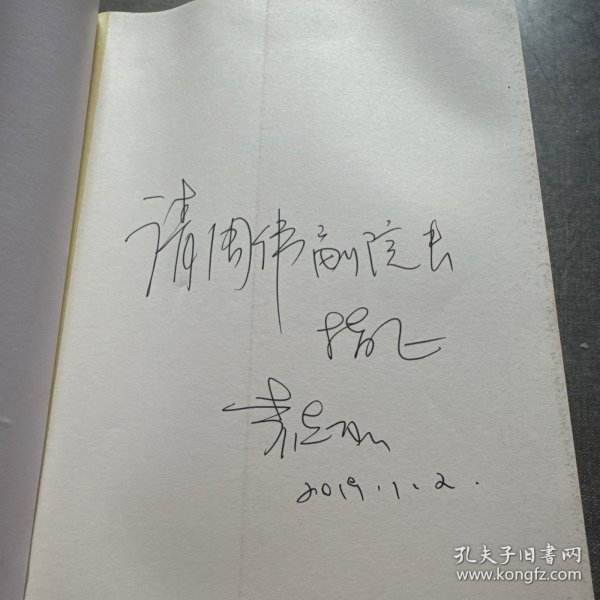 请周伟副院长
指正
2019.1.2.
孔夫子旧书网
www.kongfz.com